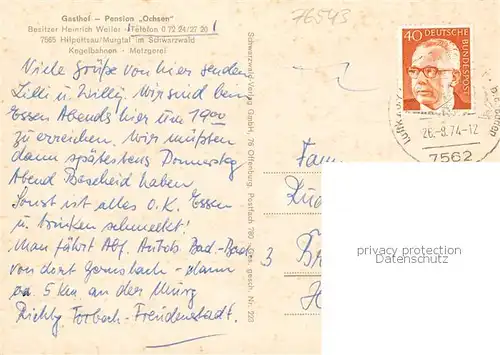 Gasthof - Pension „Ochsen"
Besitzer Heinrich Weiler Telefon 0 72 24/27 20
7565 Hilpertsau/Murgtal im Schwarzwald
Kegelbahnen - Metzgerei
76543
Viele Grüße von hier senden
Lilli u. Willy. Wir sind beim
Essen Abends hier um 19 00
zu erreichen. Wir müßten
dann spätestens Donnerstag
Abend Bescheid haben.
Sonst ist alles O.K. Essen
u. trinken schmeckt!
Man fährt Abf. Autob. Bad-Bad
von dort Gernsbach - dann
ca. 5 Km an der Murg
Richtg Forbach - Freudenstadt.
Schwarzwald-Verlag GmbH, 76 Offenburg, Postfach 780 Ges. gesch. Nr. 223
40 DEUTSCHE BUNDESPOST
26.-8.74-12
7562
Fam
3
privacy protection
DDDDatenschutz